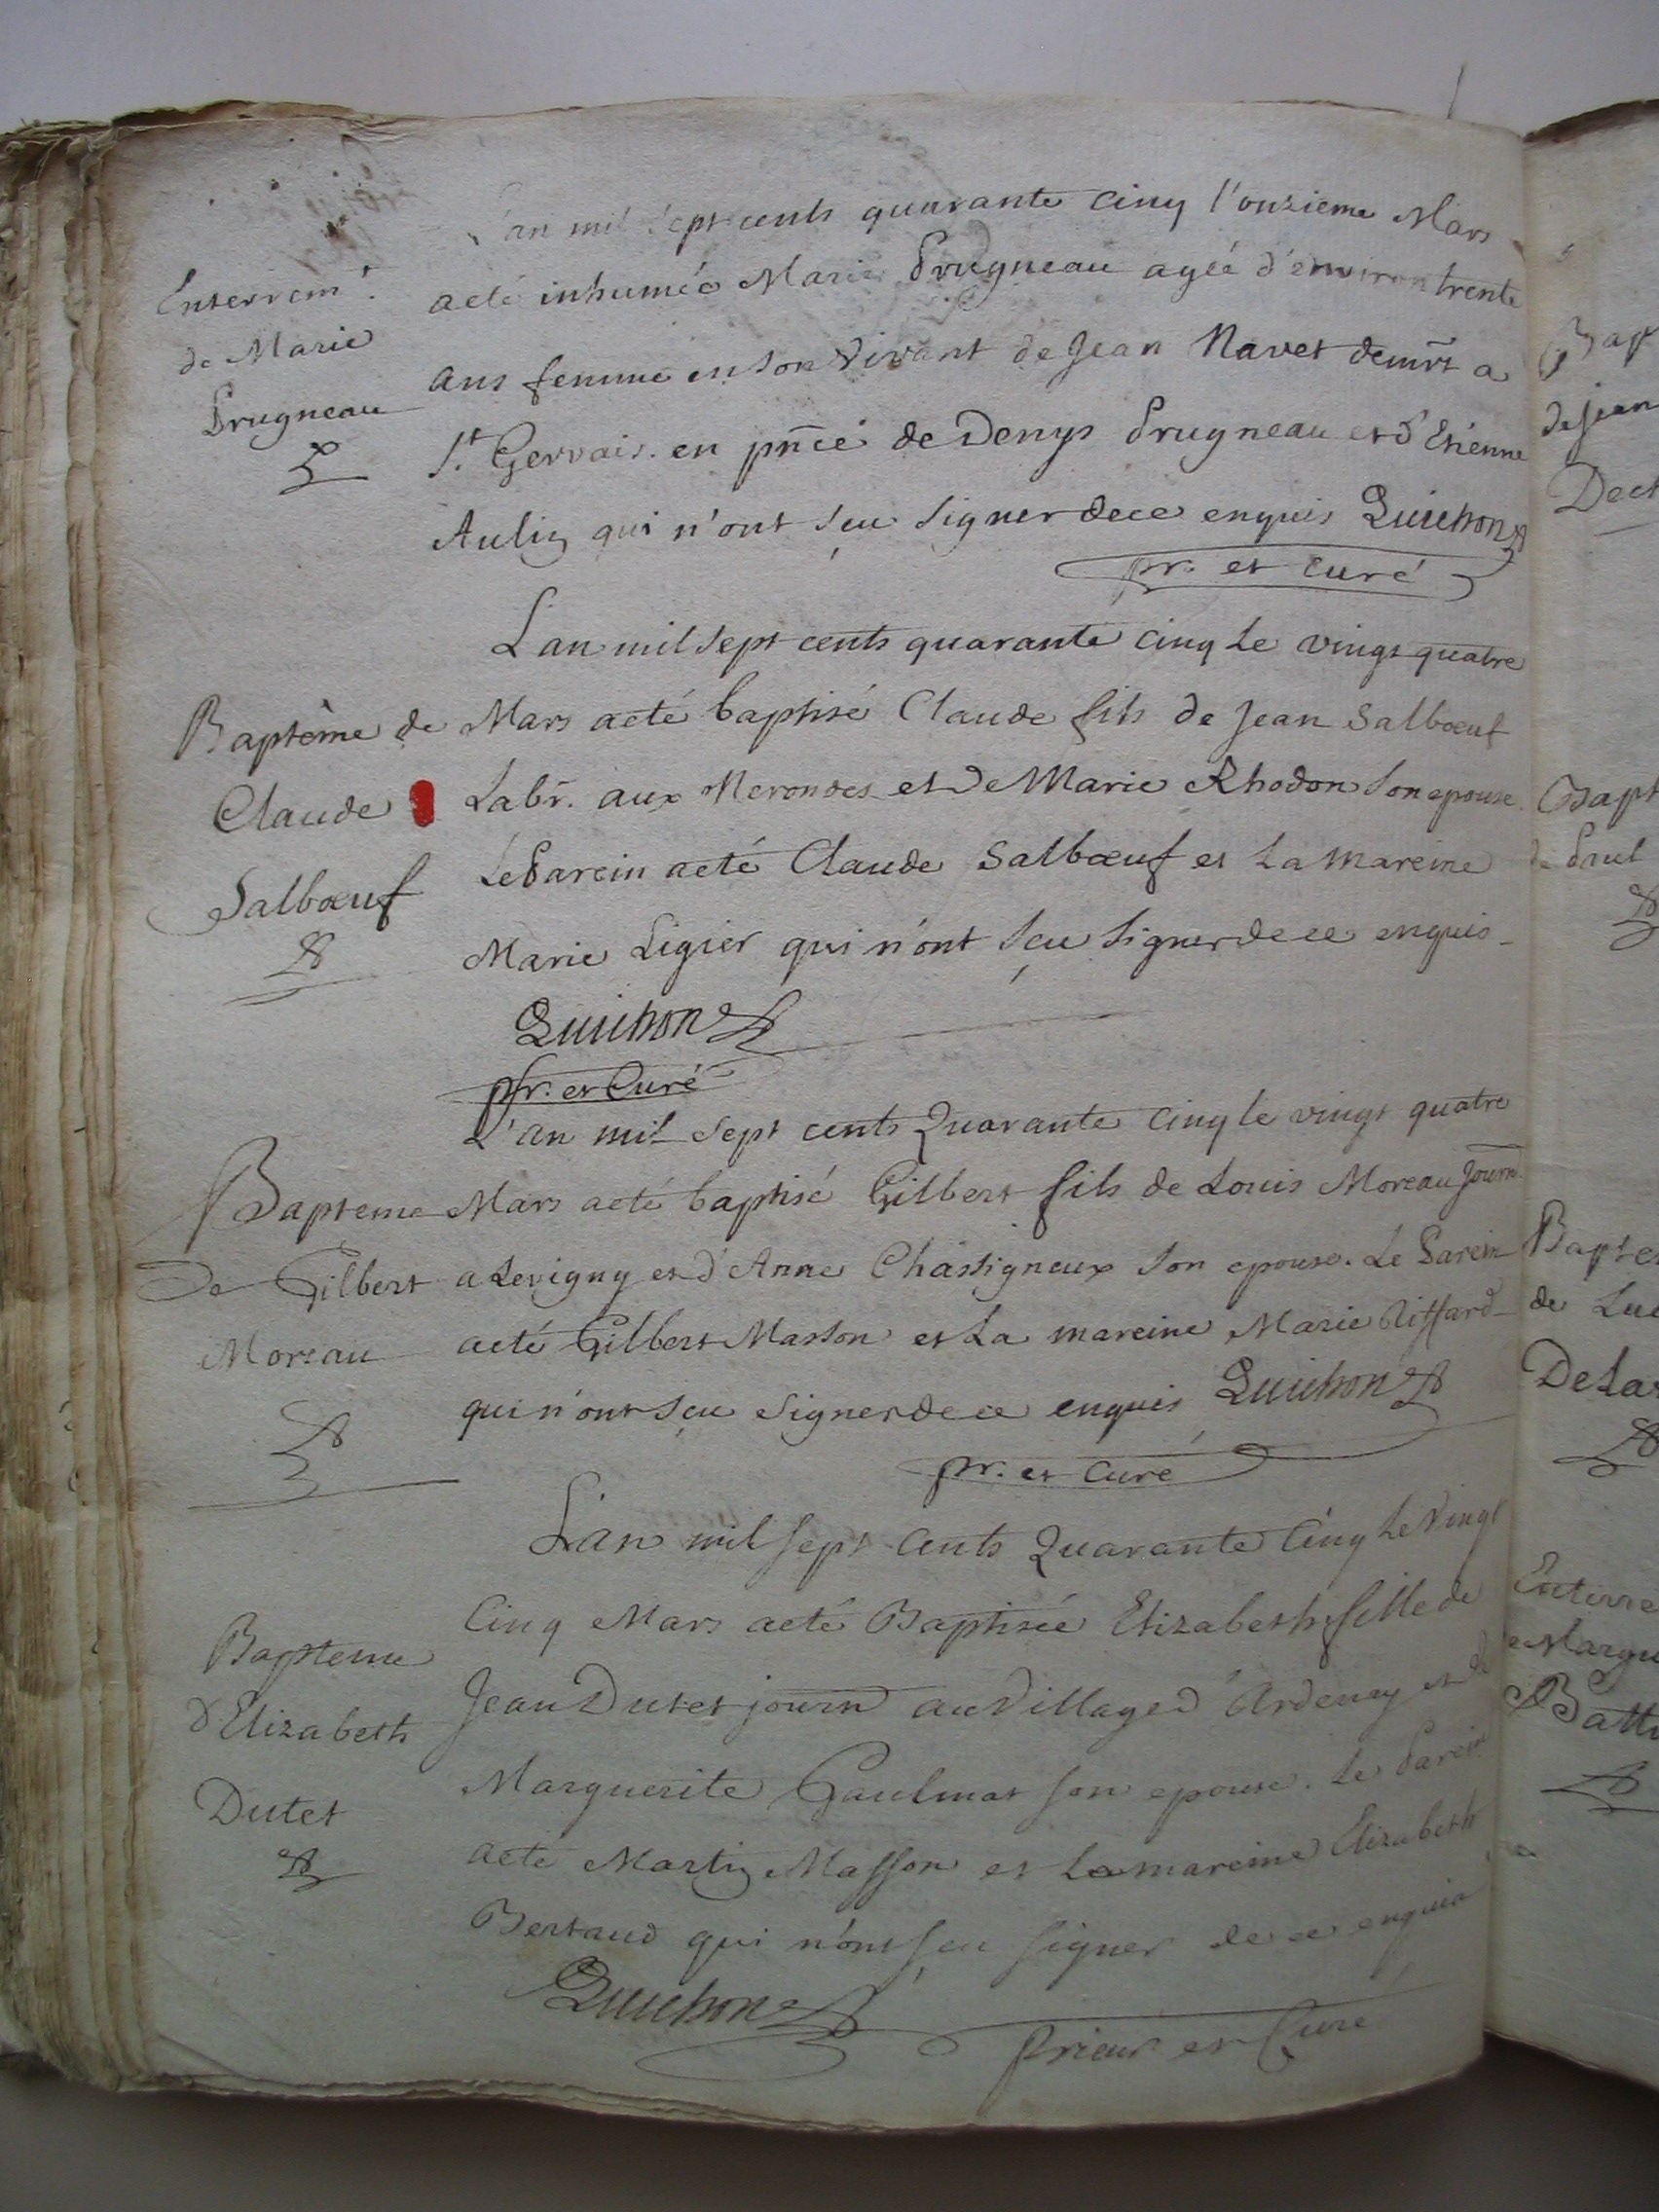 Enterrem.t
de Marie
Prugneau
L'an mil sept cents quarante cinq l'onzieme Mars
a eté inhumée Marie Prugneau agée d'environ trente
ans femme en son vivant de Jean Navet demrt a
St. Gervais. en pñce de Denys Prugneau et d'Etienne
Aulin qui n'ont sçu signer de ce enquis Quichon
pr. et curé
Baptème de
Claude
Salbœuf
L'an mil sept cents quarante cinq le vingt quatre
Mars a eté baptisé Claude fils de Jean Salbœuf
Labr. aux Merondes et de Marie Rhodon son epouse.
Le Parein a eté Claude Salbœuf et la mareine
Marie Ligier qui n'ont sçu signer de ce enquis
Quichon
pr. et Curé
Bapteme
de Gilbert
Moreau
L'an mil sept cents Quarante cinq le vingt quatre
Mars a eté baptisé Gilbert fils de Louis Moreau Journ.
a Levigny et d'Anne Chassigneux son epouse. Le Parein
a eté Gilbert Masson et La mareine Marie
qui n'ont sçu signer de ce enquis Quichon
pr. et Curé
Bapteme
d'Elizabeth
Dutet
L'an mil sept Cents Quarante Cinq le Vingt
Cinq Mars a eté Baptisée Elizabeth fille de
Jean Dutet journ au Village d'Ardenay et de
Marguerite Gaulmat son epouse. Le Parein
a eté Martin Masson et La mareine Elizabeth
Bertaud qui n'ont sçu signer de ce enquis
Quichon
Prieur et Curé
Bap
de Jean
Dect
Bapt
de Paul
Bapte
de Lu
DeLa
Enterre
de Margu
Batti